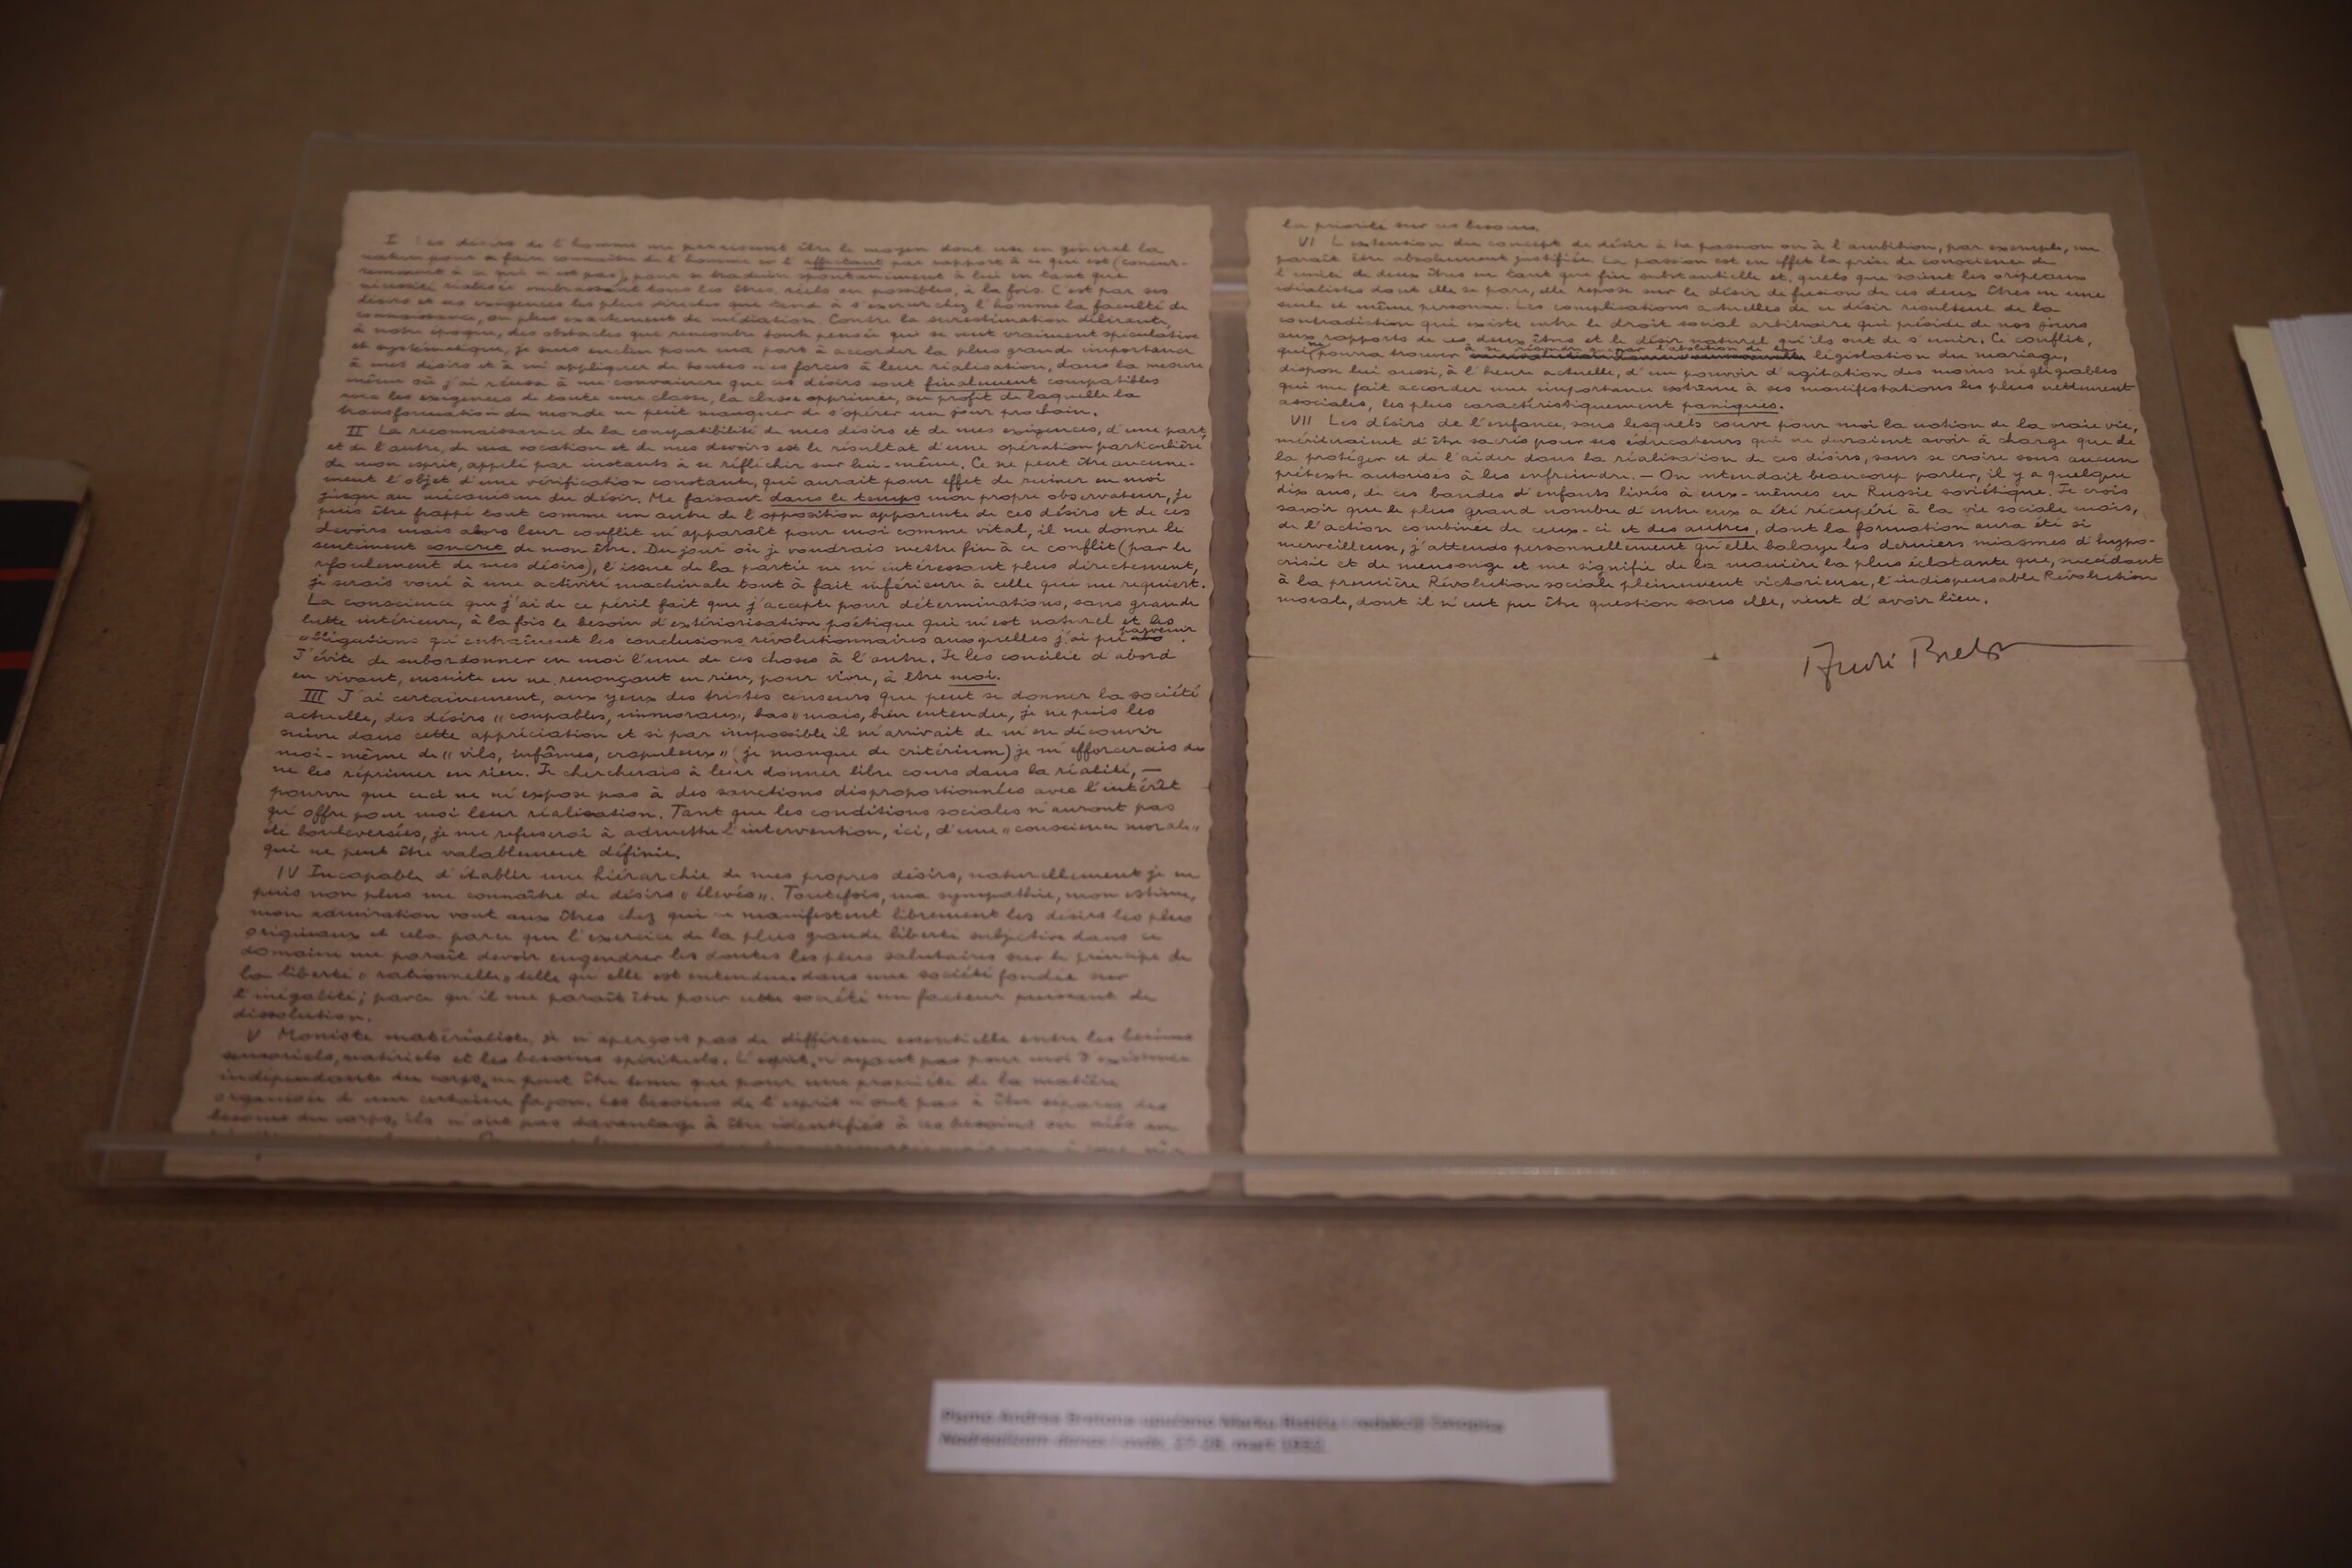 I Les désirs de l'homme me paraissent être le moyen dont use en général la
nature pour se faire connaître de l'homme en l'affectant par rapport à ce qui est (concur-
remment à ce qui n'est pas), pour se traduire spontanément à lui en tant que
nécessité réalisée embrassant tous les êtres, réels ou possibles, à la fois. C'est par ses
désirs et ses exigences les plus directes que tend à s'exercer chez l'homme la faculté de
connaissance, ou plus exactement de médiation. Contre la surestimation délirante,
à notre époque, des obstacles que rencontre toute pensée qui se veut vraiment spéculative
et systématique, je suis enclin pour ma part à accorder la plus grande importance
à mes désirs et à m'appliquer de toutes mes forces à leur réalisation, dans la mesure
même où j'ai réussi à me convaincre que ces désirs sont finalement compatibles
avec les exigences de toute une classe, la classe opprimée, au profit de laquelle la
transformation du monde ne peut manquer de s'opérer un jour prochain.
II La reconnaissance de la compatibilité de mes désirs et de mes exigences, d'une part,
et de l'autre, de ma vocation et de mes devoirs est le résultat d'une opération particulière
de mon esprit, appelé par instants à se réfléchir sur lui-même. Ce ne peut être aucune-
ment l'objet d'une vérification constante, qui aurait pour effet de ruiner en moi
jusqu'au mécanisme du désir. Me faisant dans le temps mon propre observateur, je
puis être frappé tout comme un autre de l'opposition apparente de ces désirs et de ces
devoirs mais alors leur conflit m'apparaît pour moi comme vital, il me donne le
sentiment concret de mon être. Du jour où je voudrais mettre fin à ce conflit (par le
refoulement de mes désirs), l'issue de la partie ne m'intéressant plus directement,
je serais voué à une activité machinale tout à fait inférieure à celle qui me requiert.
La conscience que j'ai de ce péril fait que j'accepte pour déterminations, sans grande
lutte intérieure, à la fois le besoin d'extériorisation poétique qui m'est naturel et les
obligations qu'entraînent les conclusions révolutionnaires auxquelles j'ai pu parvenir.
J'évite de subordonner en moi l'une de ces choses à l'autre. Je les concilie d'abord
en vivant, ensuite en ne renonçant en rien, pour vivre, à être moi.
III J'ai certainement, aux yeux des tristes censeurs que peut se donner la société
actuelle, des désirs « coupables, immoraux, bas » mais, bien entendu, je ne puis les
suivre dans cette appréciation et si par impossible il m'arrivait de m'en découvrir
moi-même de « vils, infâmes, crapuleux » (je manque de critérium) je m'efforcerais de
ne les réprimer en rien. Je chercherais à leur donner libre cours dans la réalité, —
pourvu que ceci ne m'expose pas à des sanctions disproportionnées avec l'intérêt
qu'offre pour moi leur réalisation. Tant que les conditions sociales n'auront pas
été bouleversées, je me refuserai à admettre l'intervention, ici, d'une « conscience morale »
qui ne peut être valablement définie.
IV Incapable d'établir une hiérarchie de mes propres désirs, naturellement je ne
puis non plus me connaître de désirs « élevés ». Toutefois, ma sympathie, mon estime,
mon admiration vont aux êtres chez qui se manifestent librement les désirs les plus
originaux et cela parce que l'exercice de la plus grande liberté subjective dans ce
domaine me paraît devoir engendrer les doutes les plus salutaires sur le principe de
la liberté « rationnelle » telle qu'elle est entendue dans une société fondée sur
l'inégalité; parce qu'il me paraît être pour cette société un facteur puissant de
dissolution.
V Moniste matérialiste, je n'aperçois pas de différence essentielle entre les besoins
sensoriels, matériels et les besoins spirituels. L'esprit, n'ayant pas pour moi d'existence
indépendante du corps, ne peut être tenu que pour une propriété de la matière
organisée d'une certaine façon. Les besoins de l'esprit n'ont pas à être séparés des
besoins du corps, ils n'ont pas davantage à être identifiés à ces besoins ou niés en
la priorité sur ces besoins.
VI L'extension du concept de désir à la passion ou à l'ambition, par exemple, me
paraît être absolument justifiée. La passion est en effet la prise de conscience de
l'unité de deux êtres en tant que fin substantielle et, quels que soient les oripeaux
idéalistes dont elle se pare, elle repose sur le désir de fusion de ces deux êtres en une
seule et même personne. Les complications actuelles de ce désir résultent de la
contradiction qui existe entre le droit social arbitraire qui préside de nos jours
aux rapports de ces deux êtres et le désir naturel qu'ils ont de s'unir. Ce conflit,
qui ne pourra trouver à se résoudre que par l'abolition de la législation du mariage,
dispose lui aussi, à l'heure actuelle, d'un pouvoir d'agitation des moins négligeables
qui me fait accorder une importance extrême à ses manifestations les plus nettement
asociales, les plus caractéristiquement paniques.
VII Les désirs de l'enfance, sous lesquels couve pour moi la notion de la vraie vie,
mériteraient d'être sacrés pour ses éducateurs qui ne devraient avoir à charge que de
la protéger et de l'aider dans la réalisation de ces désirs, sans se croire sous aucun
prétexte autorisés à les enfreindre. — On entendait beaucoup parler, il y a quelque
dix ans, de ces bandes d'enfants livrés à eux-mêmes en Russie soviétique. Je crois
savoir que le plus grand nombre d'entre eux a été récupéré à la vie sociale mais,
de l'action combinée de ceux-ci et des autres, dont la formation aura été si
merveilleuse, j'attends personnellement qu'elle balaye les derniers miasmes d'hypo-
crisie et de mensonge et me signifie de la manière la plus éclatante que, succédant
à la première Révolution sociale pleinement victorieuse, l'indispensable Révolution
morale, dont il n'eut pu être question sans elle, vient d'avoir lieu.
André Breton
Pismo Andrea Bretona upućeno Marku Ristiću i redakciji časopisa
Nadrealizam danas i ovde, 27-28. mart 1932.